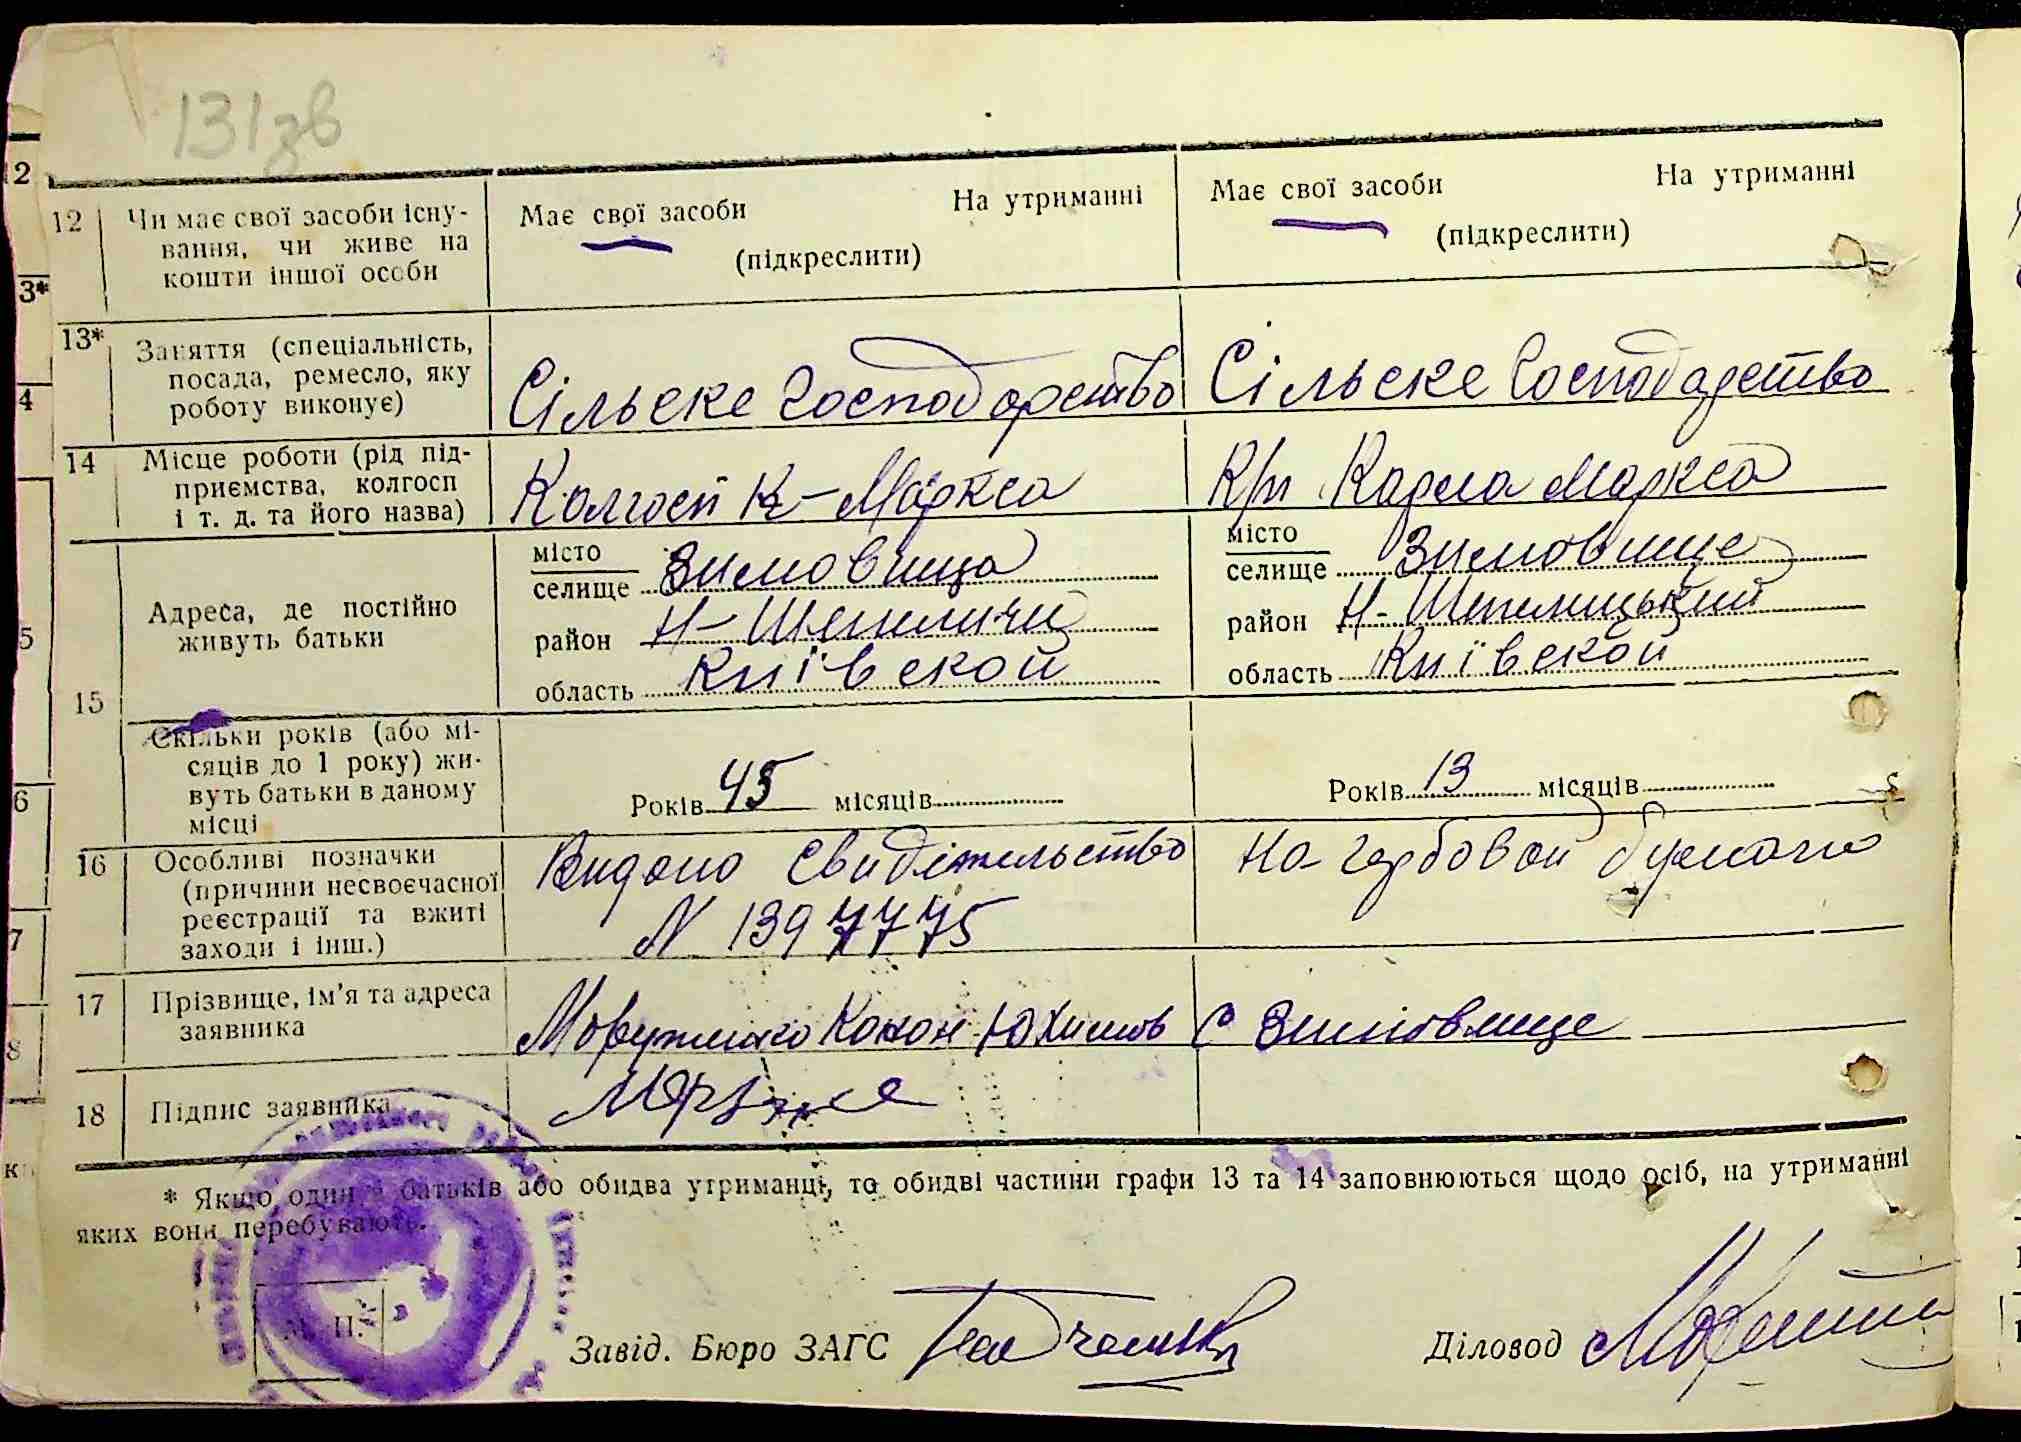 131зв
2
3*
4
5
6
7
8
12 Чи має свої засоби існу-
вання, чи живе на
кошти іншої особи
Має свої засоби На утриманні
(підкреслити)
Має свої засоби На утриманні
(підкреслити)
13* Заняття (спеціальність,
посада, ремесло, яку
роботу виконує)
Сільске Господарство
Сільске Господарство
14 Місце роботи (рід під-
приємства, колгосп
і т. д. та його назва)
Колгосп К-Маркса
К/гп Карла Маркса
15
Адреса, де постійно
живуть батьки
місто
селище Зимовища
район Н-Шепеличи
область Київской
місто
селище Зимовище
район Н-Шепелицький
область Київской
Скільки років (або мі-
сяців до 1 року) жи-
вуть батьки в даному
місці
Років 45 місяців
Років 13 місяців
16 Особливі позначки
(причини несвоєчасної
реєстрації та вжиті
заходи і інш.)
Видано Свидітельство
N 1397775
на гербовой бумаги
17 Прізвище, ім'я та адреса
заявника
Конон Юхимов
С Зимовище
18 Підпис заявника
* Якщо один з батьків або обидва утриманці, то обидві частини графи 13 та 14 заповнюються щодо осіб, на утриманні
яких вони перебувають.
М. П.
Завід. Бюро ЗАГС
Діловод